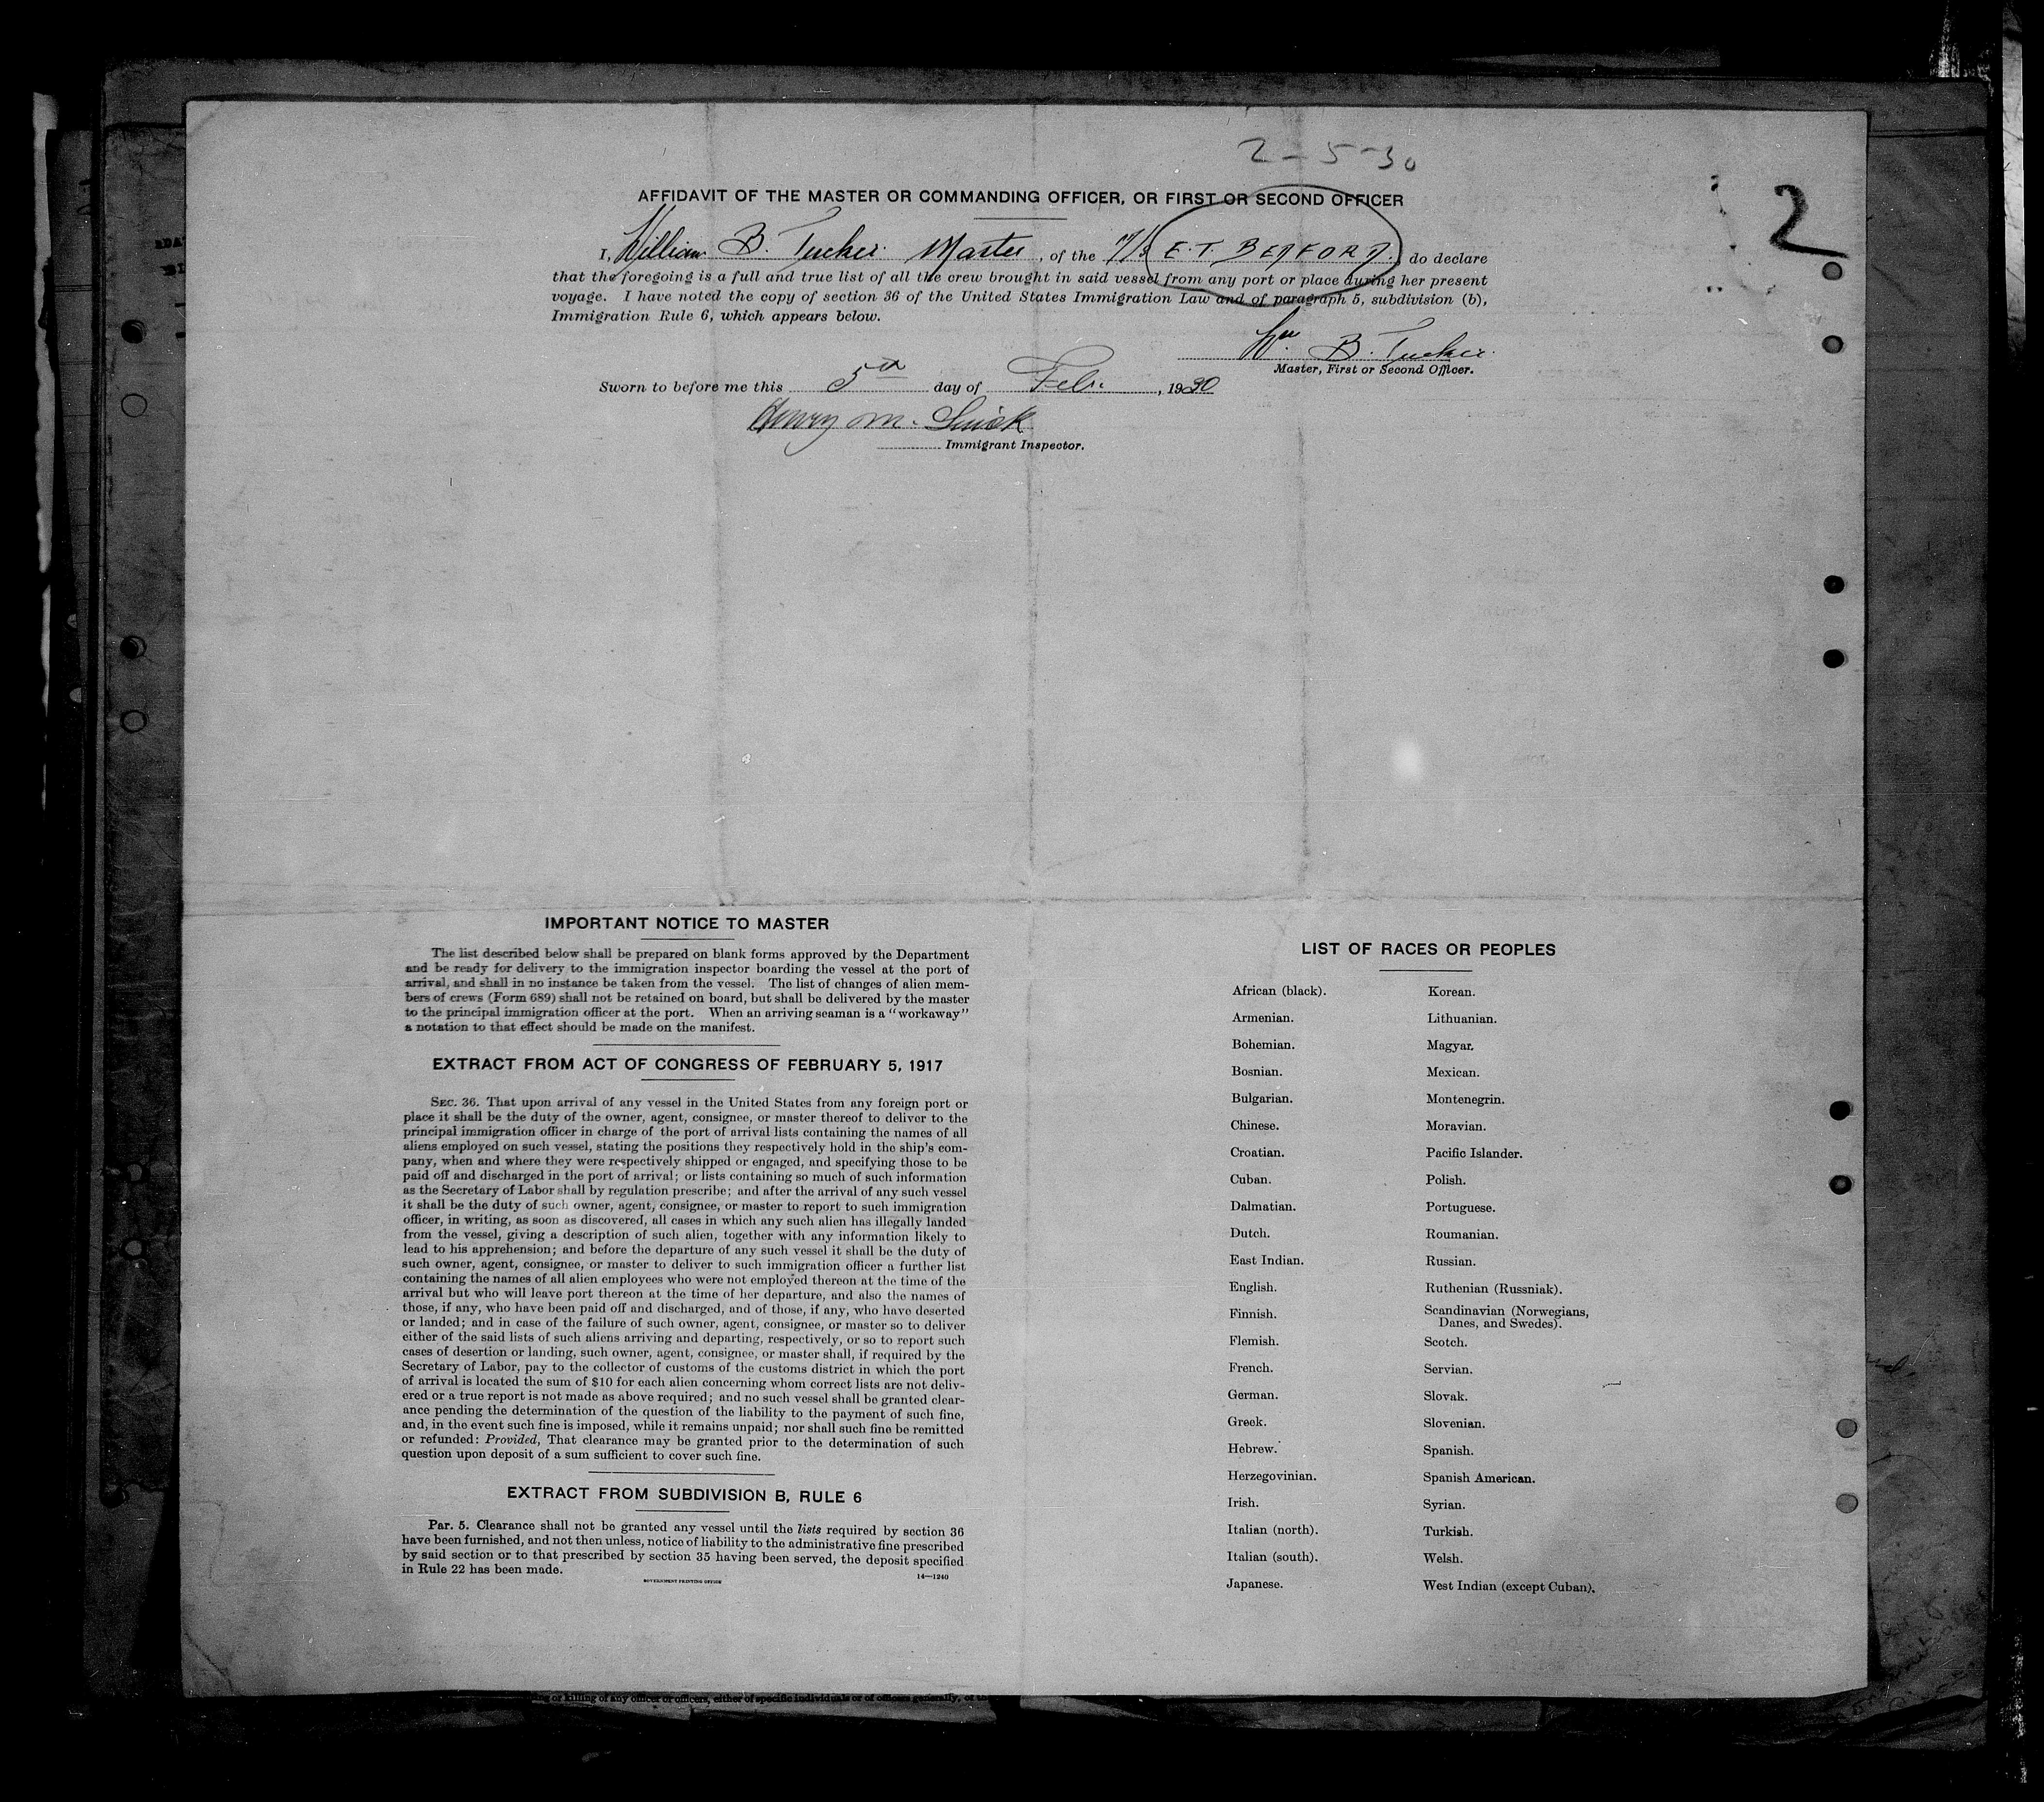 2-5-30
2
AFFIDAVIT OF THE MASTER OR COMMANDING OFFICER, OR FIRST OR SECOND OFFICER
I, William B. Tucker Master, of the M/S E.T. BEDFORD, do declare
that the foregoing is a full and true list of all the crew brought in said vessel from any port or place during her present
voyage. I have noted the copy of section 36 of the United States Immigration Law and of paragraph 5, subdivision (b),
Immigration Rule 6, which appears below.
Wm. B. Tucker.
Master, First or Second Officer.
Sworn to before me this 5th day of Feb., 1930
Henry M.
Immigrant Inspector.
IMPORTANT NOTICE TO MASTER
The list described below shall be prepared on blank forms approved by the Department
and be ready for delivery to the immigration inspector boarding the vessel at the port of
arrival, and shall in no instance be taken from the vessel. The list of changes of alien mem-
bers of crews (Form 689) shall not be retained on board, but shall be delivered by the master
to the principal immigration officer at the port. When an arriving seaman is a "workaway"
a notation to that effect should be made on the manifest.
EXTRACT FROM ACT OF CONGRESS OF FEBRUARY 5, 1917
SEC. 36. That upon arrival of any vessel in the United States from any foreign port or
place it shall be the duty of the owner, agent, consignee, or master thereof to deliver to the
principal immigration officer in charge of the port of arrival lists containing the names of all
aliens employed on such vessel, stating the positions they respectively hold in the ship's com-
pany, when and where they were respectively shipped or engaged, and specifying those to be
paid off and discharged in the port of arrival; or lists containing so much of such information
as the Secretary of Labor shall by regulation prescribe; and after the arrival of any such vessel
it shall be the duty of such owner, agent, consignee, or master to report to such immigration
officer, in writing, as soon as discovered, all cases in which any such alien has illegally landed
from the vessel, giving a description of such alien, together with any information likely to
lead to his apprehension; and before the departure of any such vessel it shall be the duty of
such owner, agent, consignee, or master to deliver to such immigration officer a further list
containing the names of all alien employees who were not employed thereon at the time of the
arrival but who will leave port thereon at the time of her departure, and also the names of
those, if any, who have been paid off and discharged, and of those, if any, who have deserted
or landed; and in case of the failure of such owner, agent, consignee, or master so to deliver
either of the said lists of such aliens arriving and departing, respectively, or so to report such
cases of desertion or landing, such owner, agent, consignee, or master shall, if required by the
Secretary of Labor, pay to the collector of customs of the customs district in which the port
of arrival is located the sum of $10 for each alien concerning whom correct lists are not deliv-
ered or a true report is not made as above required; and no such vessel shall be granted clear-
ance pending the determination of the question of the liability to the payment of such fine,
and, in the event such fine is imposed, while it remains unpaid; nor shall such fine be remitted
or refunded: Provided, That clearance may be granted prior to the determination of such
question upon deposit of a sum sufficient to cover such fine.
EXTRACT FROM SUBDIVISION B, RULE 6
Par. 5. Clearance shall not be granted any vessel until the lists required by section 36
have been furnished, and not then unless, notice of liability to the administrative fine prescribed
by said section or to that prescribed by section 35 having been served, the deposit specified
in Rule 22 has been made.
GOVERNMENT PRINTING OFFICE 14—1240
LIST OF RACES OR PEOPLES
African (black).
Armenian.
Bohemian.
Bosnian.
Bulgarian.
Chinese.
Croatian.
Cuban.
Dalmatian.
Dutch.
East Indian.
English.
Finnish.
Flemish.
French.
German.
Greek.
Hebrew.
Herzegovinian.
Irish.
Italian (north).
Italian (south).
Japanese.
Korean.
Lithuanian.
Magyar.
Mexican.
Montenegrin.
Moravian.
Pacific Islander.
Polish.
Portuguese.
Roumanian.
Russian.
Ruthenian (Russniak).
Scandinavian (Norwegians,
Danes, and Swedes).
Scotch.
Servian.
Slovak.
Slovenian.
Spanish.
Spanish American.
Syrian.
Turkish.
Welsh.
West Indian (except Cuban).
ing or killing of any officer or officers, either of specific individuals or of officers generally, or